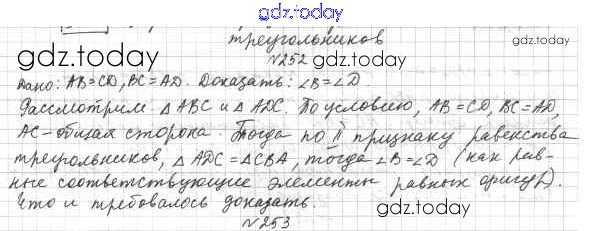 gdz.today
треугольников
№252
gdz.today gdz.today
Дано: AB=CD, BC=AD. Доказать: ∠B=∠D
Рассмотрим △ABC и △ADC. По условию, AB=CD, BC=AD,
AC-общая сторона. Тогда по II признаку равенства
треугольников, △ADC=△CBA, тогда ∠B=∠D (как рав-
ные соответствующие элементы равных фигур).
Что и требовалось доказать.
gdz.today
№253